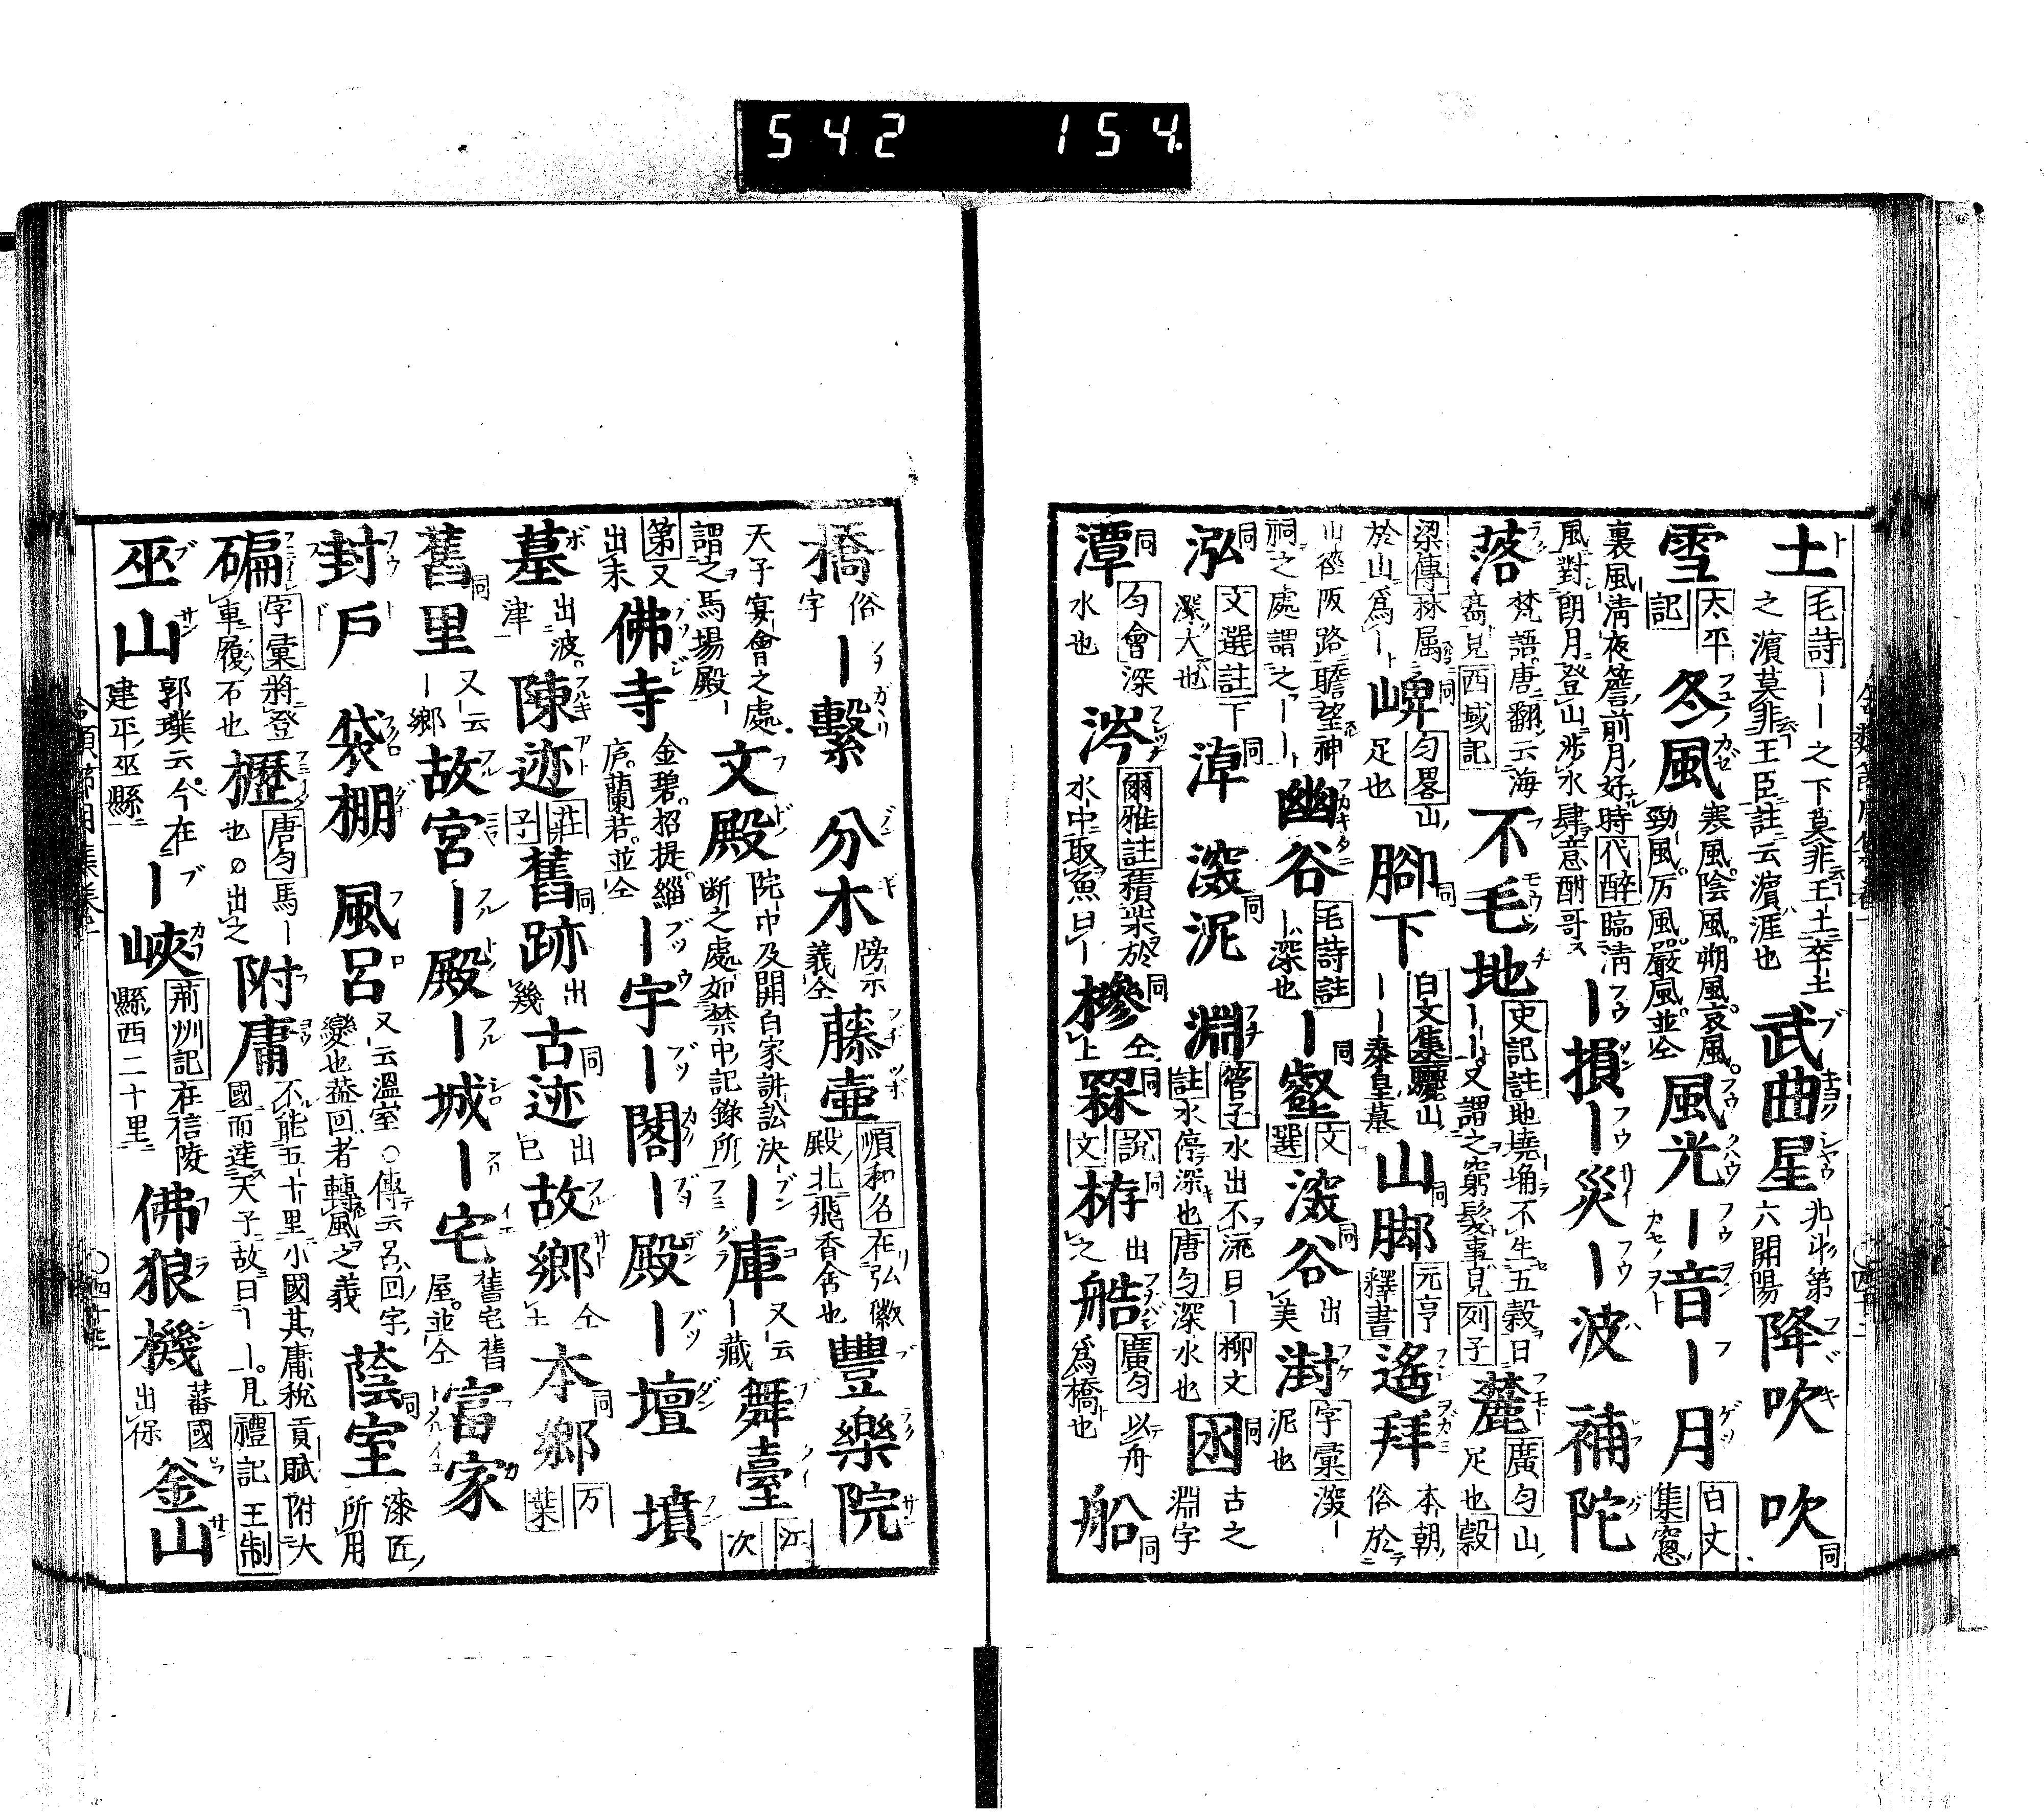 542 154.
土 毛詩ーー之下莫非王土卒土之濱莫非王臣註云濱涯也 武曲星 北斗第六開陽 降吹 吹 同
雪 太平記 冬風 寒風陰風朔風哀風勁風厉風嚴風並仝 風光 ー音 ー月 白文集窓
裏風清夜簷前月好時代醉臨清風對朗月登山渉水肆意酣哥ス ー損 ー災 ー波 補陀
落 梵語唐翻云海嶌見西域記 不毛地 史記註地墝埆不生五穀曰ーー又謂之窮髮事見列子 麓 廣匀山足也穀
梁傳林属於山爲ー 崥 同 匀畧山足也 腳下 同 白文集驪山ーー泰皇墓 山脚 同 元亨釋書 遙拜 本朝俗於
山徑阪路瞻望神祠之處謂之ーー 幽谷 毛詩註ー深也 ー壑 同 文選 深谷 同 出美 澍 字彙深ー泥也
泓 同 文選註下深大也 淖 同 深泥 同 淵 管子水出不流曰ー柳文註水停深也唐匀深水也 囦 同 古之淵字
潭 同 匀會深水也 涔 爾雅註積柴於水中取魚曰ー 槮 同 仝上 罧 同 說文 栫 同 出之 艁 廣匀以舟爲橋也 船 同
橋 俗字 ー繫 分木 牓示義仝 藤壷 順和名在弘徽殿北飛香舍也 豐樂院
天子宴會之處謂之馬場殿ー 文殿 院中及開白家訴訟決断之處如禁中記錄所 ー庫 又云ー藏 舞臺 江次
第又出未 佛寺 金碧招提緇庐蘭若並仝 ー宇 ー閣 ー殿 ー壇 墳
墓 出波津 陳迹 莊子 舊跡 同 出幾 古迹 同 出巳 故鄉 仝上 本鄉 同 万葉
舊里 同 又云ー鄉 故宮 ー殿 ー城 ー宅 舊宅舊屋並仝 富家
封戶 袋棚 風呂 又云溫室〇傳云呂回字變也葢回者轉風之義 蔭室 同 漆匠所用
碥 字彙將登車履石也 櫪 唐匀馬ー也出之 附庸 不能五十里小國其庸稅貢賦附大國而達天子故曰ーー見禮記王制
巫山 郭璞云今在建平巫縣 ー峽 荊州記在信陵縣西二十里 佛狼機 蕃國出保 釡山